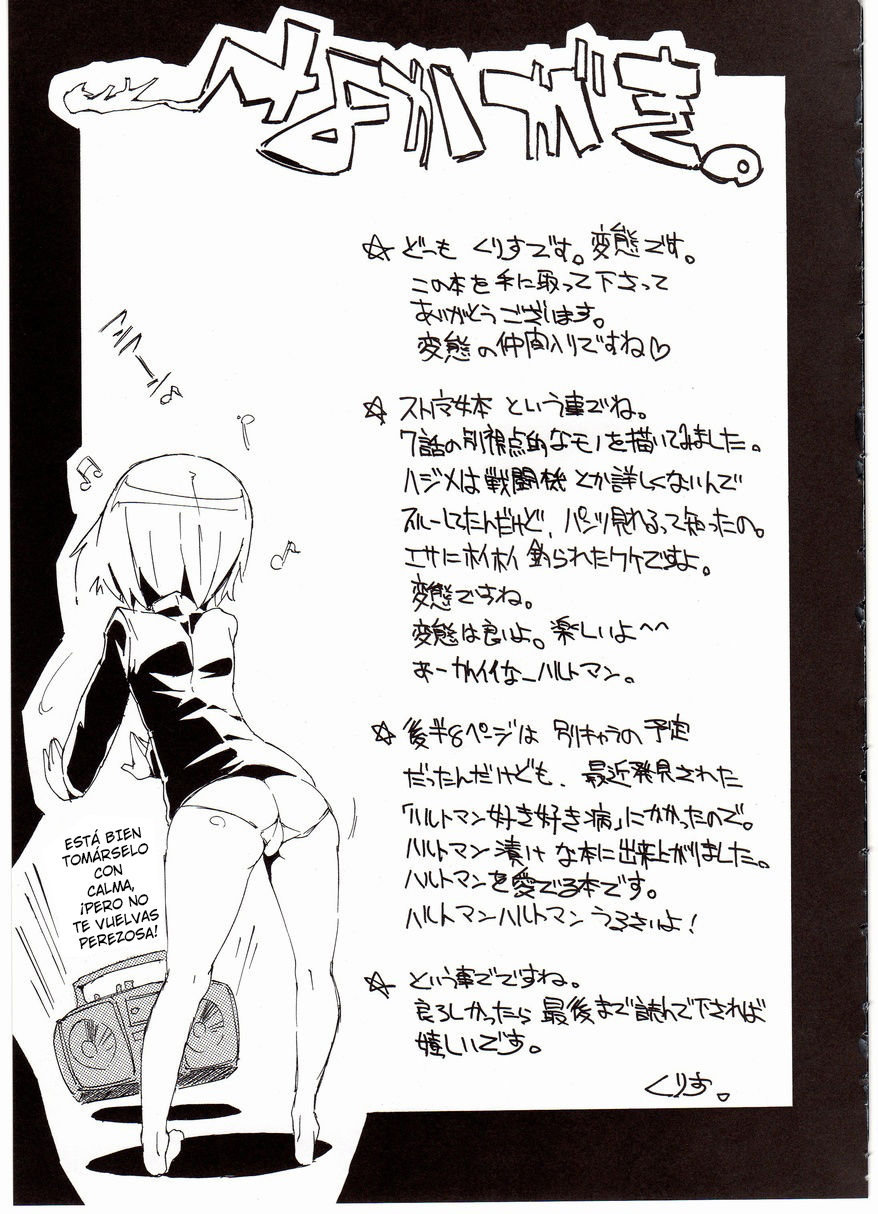 なかがき。
☆ どーも くりすです。変態です。
この本を手に取って下さって
ありがとうございます。
変態の仲間入りですね♡
☆ ストパン本 という事でね。
7話の別視点的なモノを描いてみました。
ハジメは戦闘機とか詳しくないんで
スルーしてたんだけど、パンツ見れるって知ったの。
エサにホイホイ釣られたワケですよ。
変態ですね。
変態は良いよ。楽しいよ〜〜
あーかわイイなーハルトマン。
☆ 後半8ページは 別キャラの予定
だったんだけども、最近発見された
「ハルトマン好き好き病」にかかったので。
ハルトマン漬けな本に出来上がりました。
ハルトマンを愛でる本です。
ハルトマンハルトマンうるさいよ!
☆ という事でですね。
良ろしかったら最後まで読んで下されば
嬉しいです。
くりす。
ESTÁ BIEN
TOMÁRSELO
CON
CALMA,
¡PERO NO
TE VUELVAS
PEREZOSA!